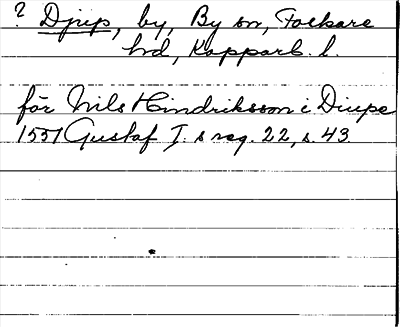 ? Djup, by, By sn, Folkare
hd, Kopparb. l.
för Nils Hindriksson i Diupe
1551 Gustaf I:s reg. 22, s. 43